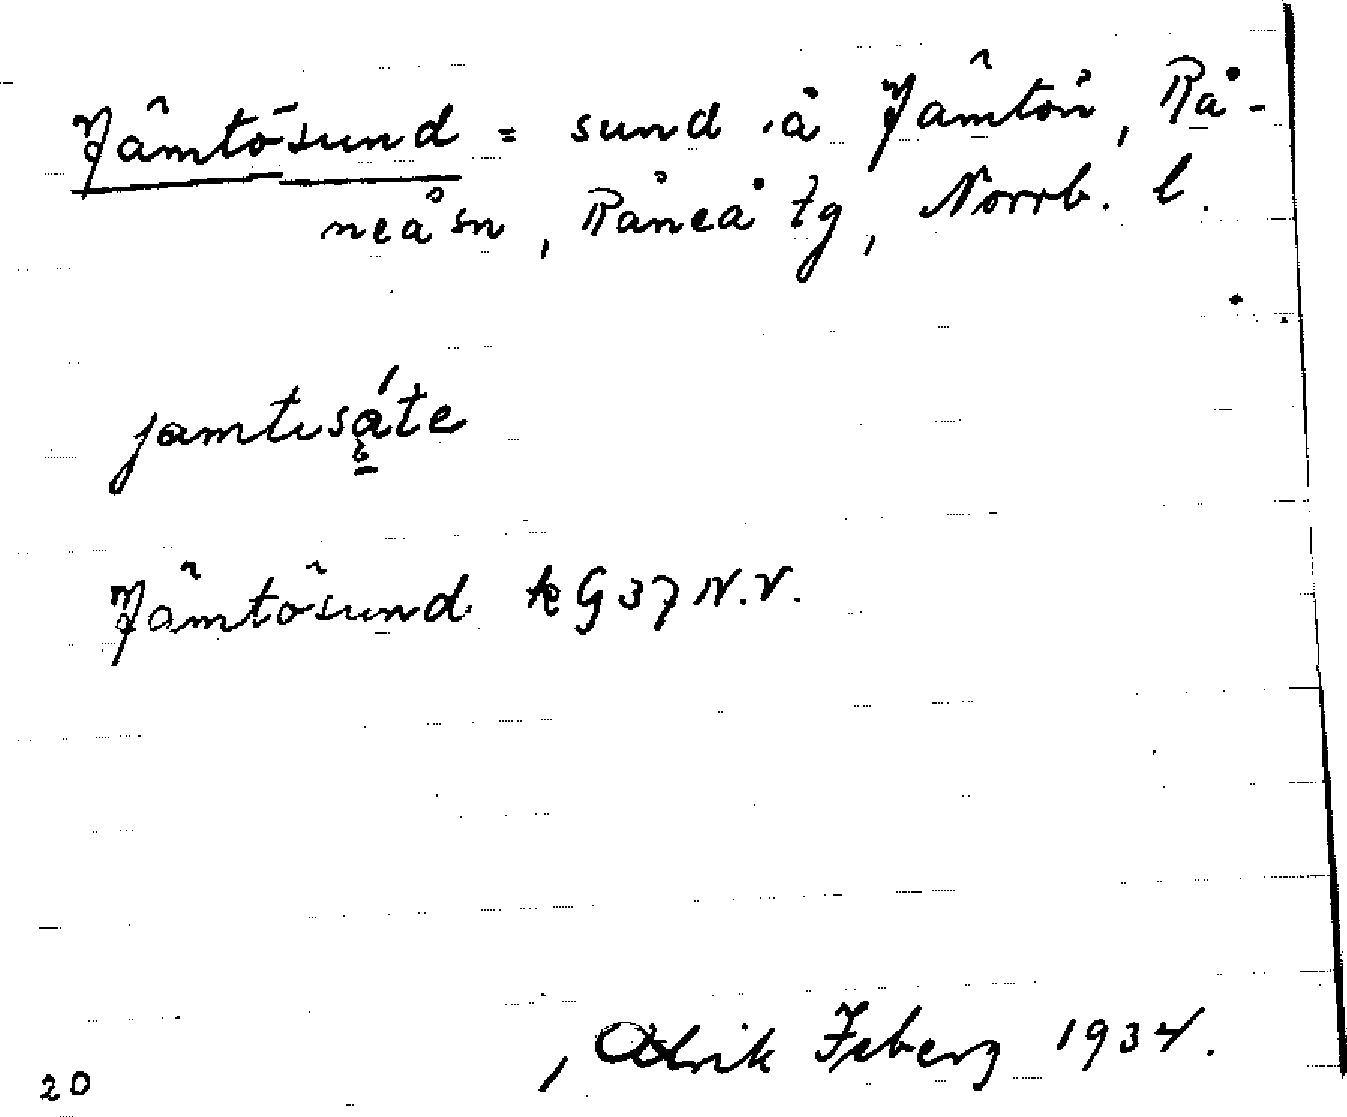 Jämtösund = sund i å Jämtön, Rå-
neå sn, Råneå tg, Norrb. l.
Jämtösund kG37N.V.
Ulrik Feberg 1934.
20